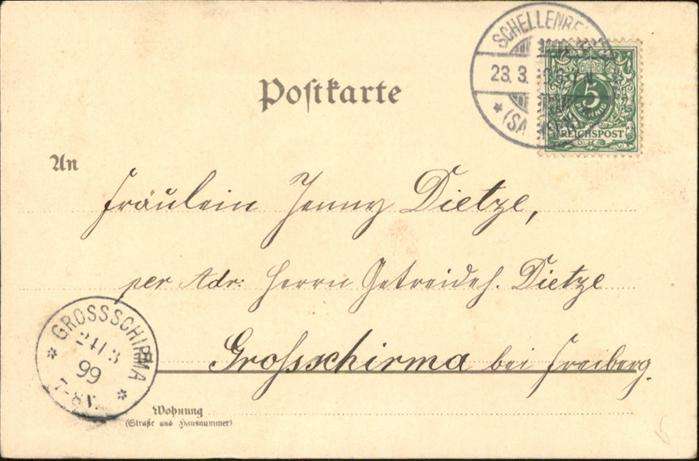 SCHELLENBE
23.3.
* (SA
5
REICHSPOST
Postkarte
An
Fräulein Jenny Dietze,
per Adr: Herrn Getreideh. Dietze
Grossschirma bei Freiberg.
* GROSSSCHIRMA *
24/3
99
7-8
Wohnung
(Straße und Hausnummer)